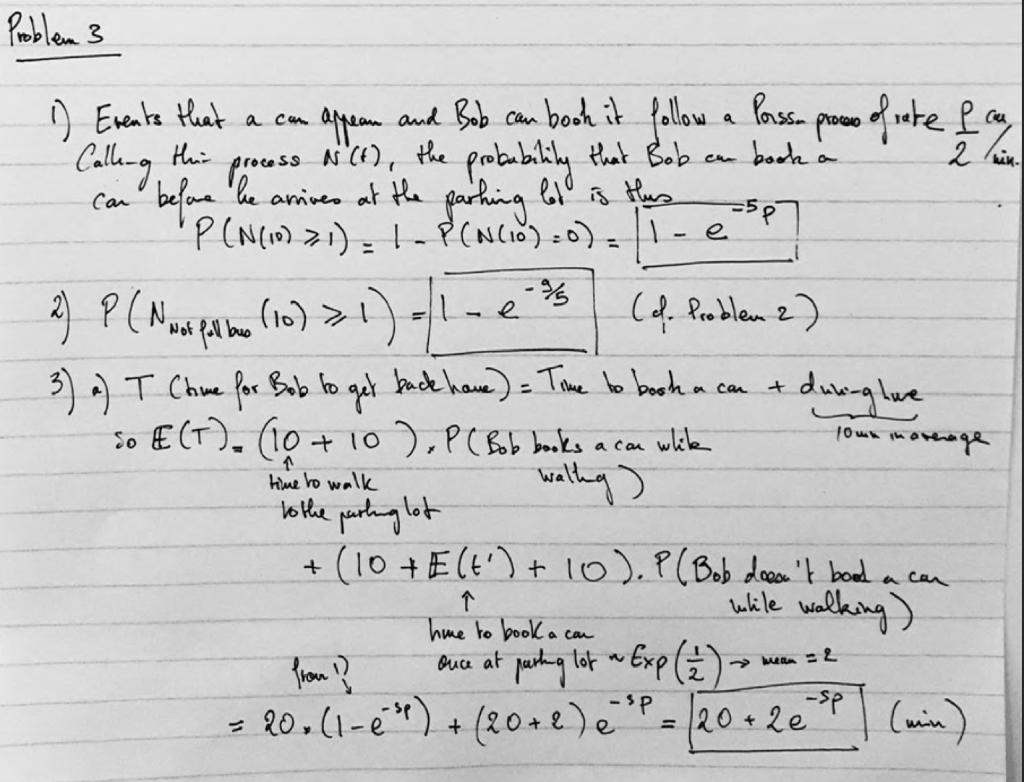 Problem 3
1) Events that a car appears and Bob can book it follow a Poisson process of rate P/2 car/min.
Calling this process N(t), the probability that Bob can book a
car before he arrives at the parking lot is thus
P(N(10) ≥ 1) = 1 - P(N(10) = 0) = 1 - e^{-5p}
2) P(N_{Not full bus}(10) ≥ 1) = 1 - e^{-9/5} (cf. Problem 2)
3) a) T (time for Bob to get back home) = Time to book a car + driving time
10min in average
so E(T) = (10 + 10). P(Bob books a car while
walking)
↑
time to walk
to the parking lot
+ (10 + E(t') + 10). P(Bob doesn't book a car
while walking)
↑
time to book a car
once at parking lot ~ Exp(1/2) → mean = 2
from 1)
= 20.(1-e^{-5p}) + (20+2) e^{-5p} = 20 + 2e^{-5p} (min)